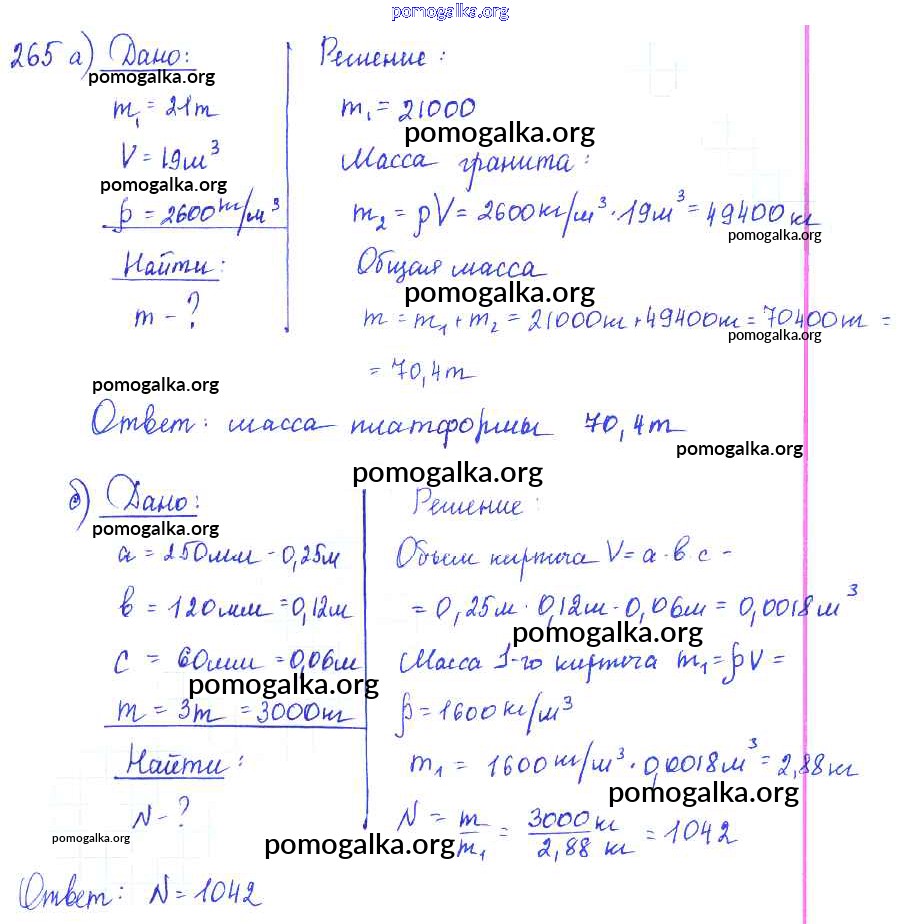 pomogalka.org
265 а) Дано:
pomogalka.org
m₁ = 21т
V = 19м³
pomogalka.org
ρ = 2600кг/м³
Найти:
m - ?
pomogalka.org
Решение:
m₁ = 21000
pomogalka.org
Масса гранита:
m₂ = ρV = 2600кг/м³ · 19м³ = 49400кг
pomogalka.org
Общая масса
pomogalka.org
m = m₁ + m₂ = 21000кг + 49400кг = 70400кг =
pomogalka.org
= 70,4т
Ответ: масса платформы 70,4т
pomogalka.org
pomogalka.org
б) Дано:
pomogalka.org
a = 250мм - 0,25м
в = 120мм = 0,12м
c = 60мм = 0,06м
pomogalka.org
m = 3т = 3000кг
Найти:
N - ?
pomogalka.org
Решение:
Объем кирпича V = a·в·c -
= 0,25м · 0,12м · 0,06м = 0,0018м³
pomogalka.org
Масса 1-го кирпича m₁ = ρV =
ρ = 1600кг/м³
m₁ = 1600кг/м³ · 0,0018м³ = 2,88кг
pomogalka.org
N = m/m₁ = 3000кг/2,88 кг = 1042
pomogalka.org
Ответ: N = 1042